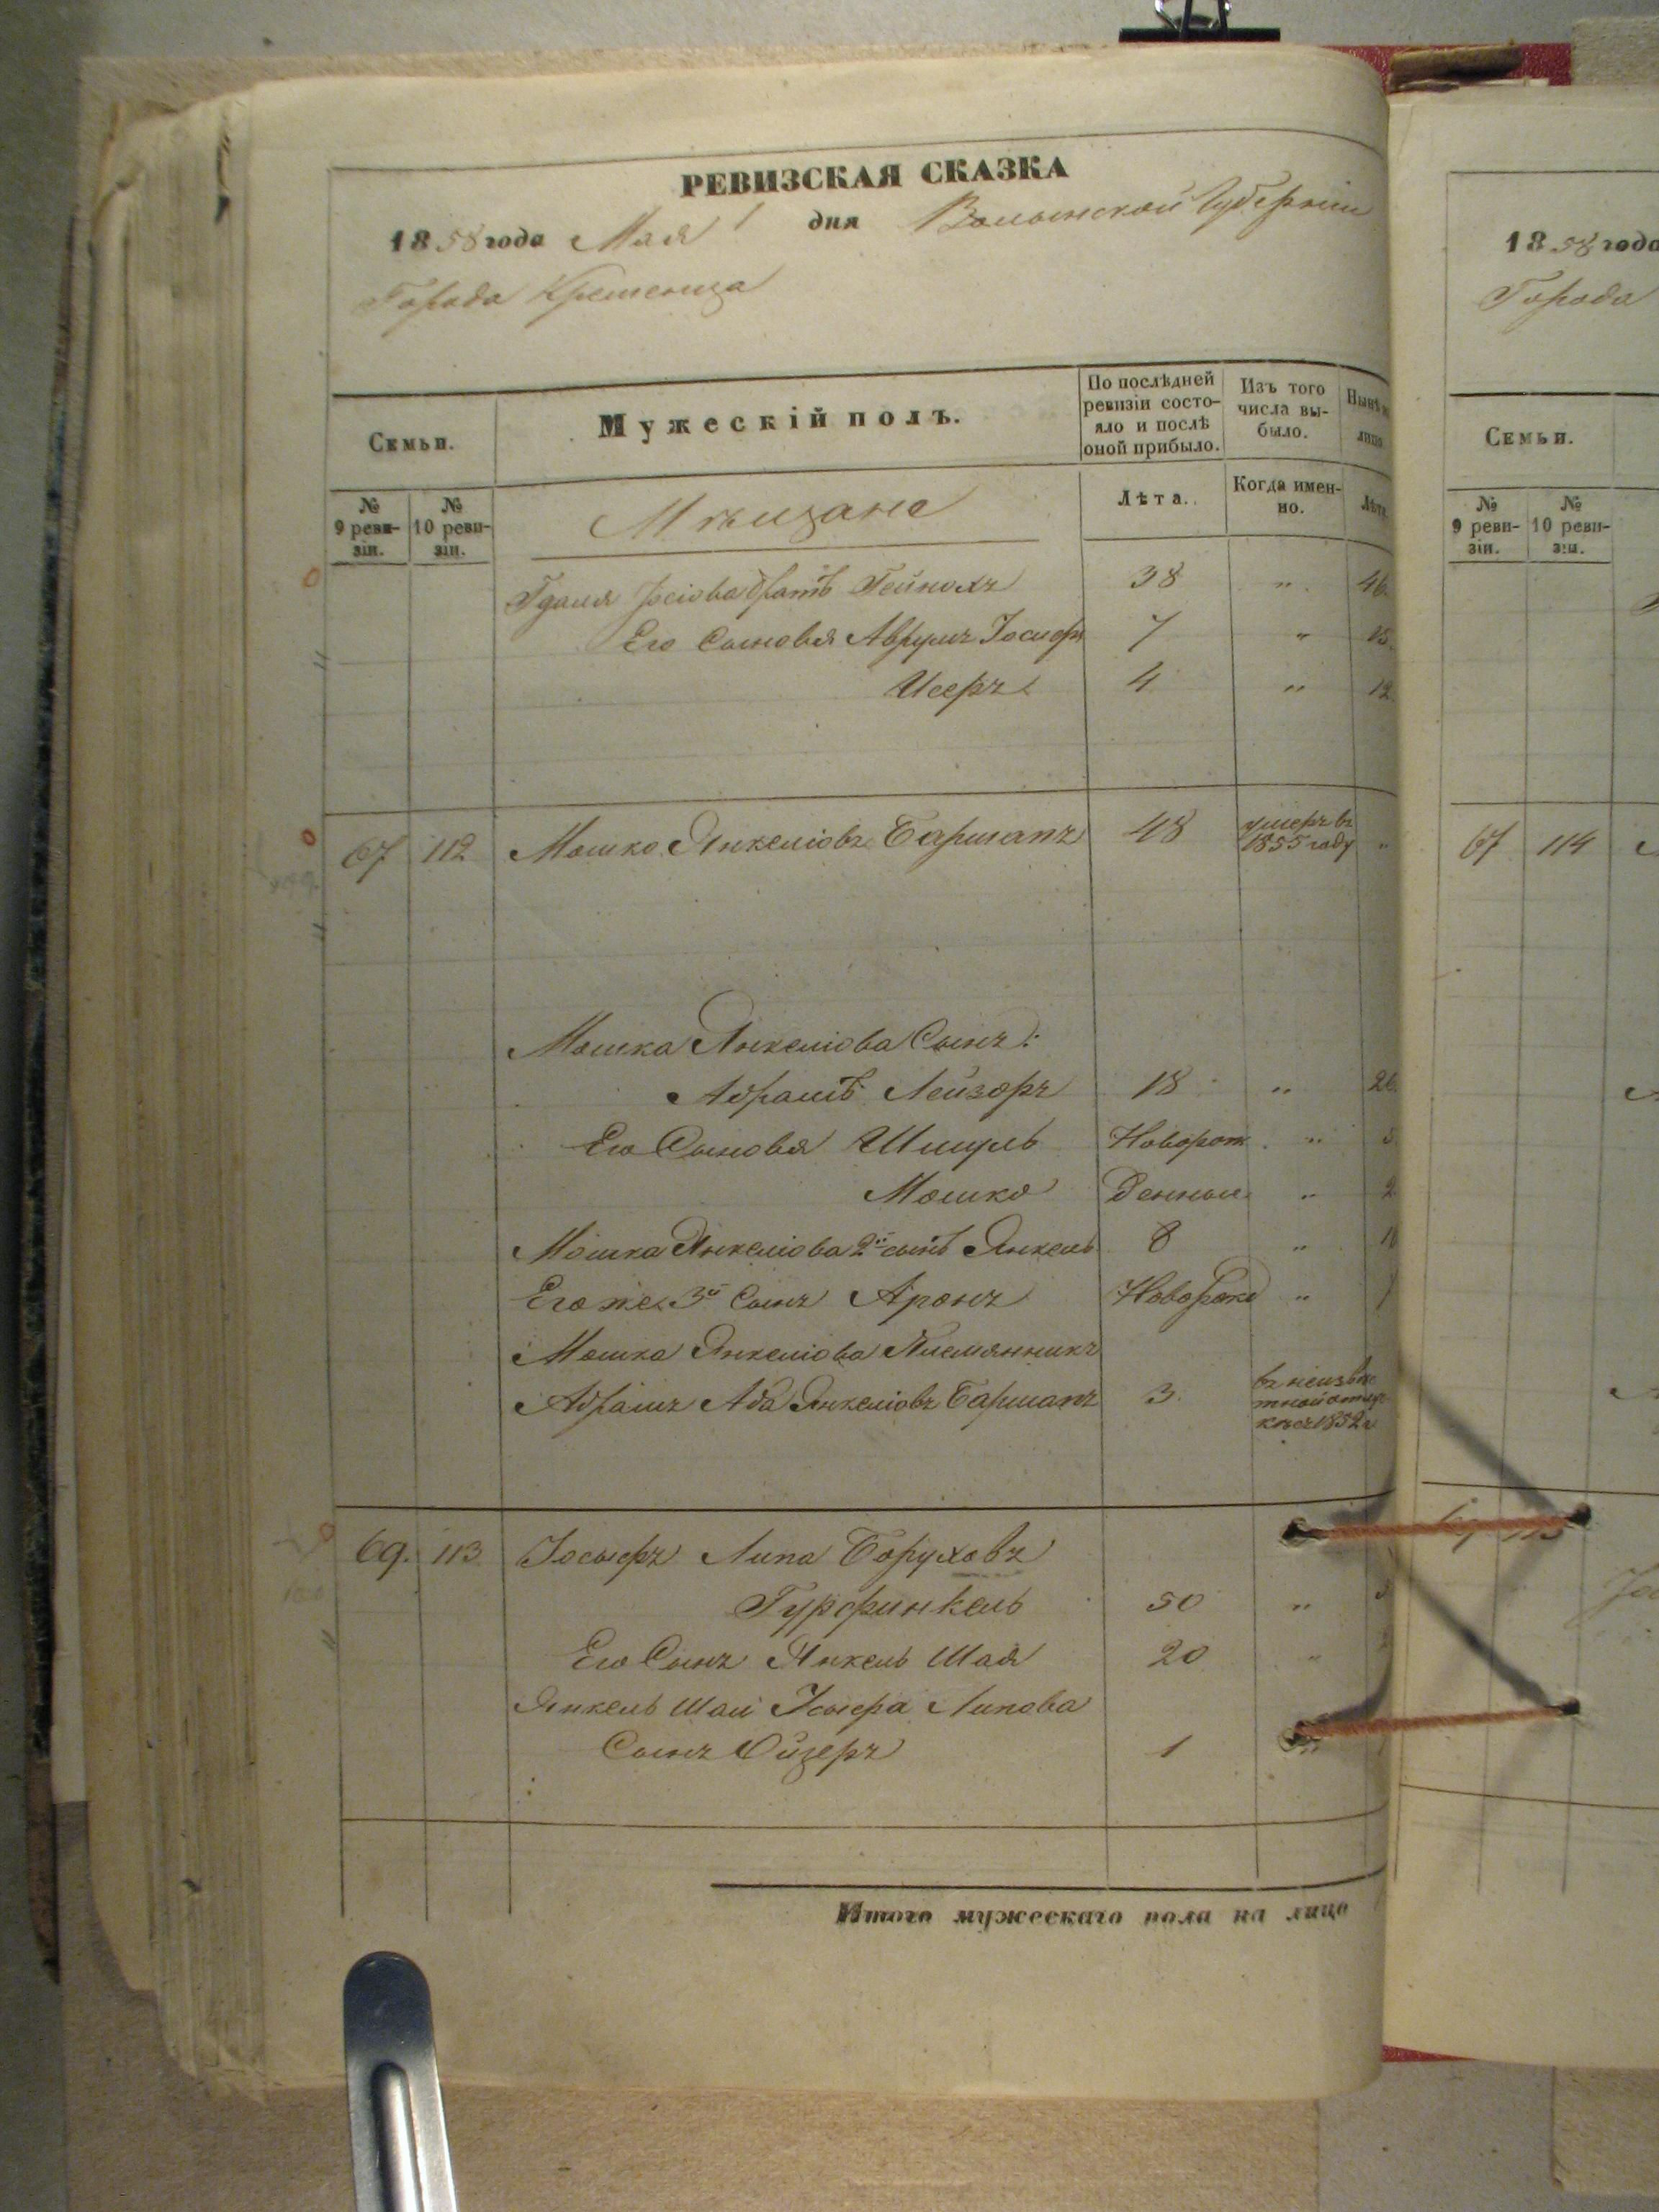 РЕВИЗСКАЯ СКАЗКА
1858 года Мая 1 дня Волынской Губерніи
Города Кременца
Семьи.
Мужескій полъ.
По послѣдней ревизіи состояло и послѣ оной прибыло.
Изъ того числа выбыло.
Нынѣ
лицо
№ 9 ревизіи.
№ 10 ревизіи.
Мѣщане
Лѣта.
Когда именно.
Лѣта.
Гдаля Іосіова братъ Гейнохъ 38 " 46.
Его Сыновья Аврумъ Іосифъ 7 " 15.
Исеръ 4 " 12
67 112 Мошко Янкеліовъ Барманъ 48 умеръ въ 1855 году "
Мошка Янкеліова Сынъ:
Абрамъ Лейзоръ 18 " 26
Его Сыновья Шмуль Новорож " 5
Мошко денные " 2
Мошка Янкеліова 2й сынъ Янкель 8 " 16
Его же 3й Сынъ Аронъ Новорожд "
Мошка Янкеліова Племянникъ
Абрамъ Аба Янкеліовъ Барманъ 3. въ неизвѣстной отлучкѣ съ 1852 г
69. 113 Іосыфъ Липа Боруховъ
Гурфинкель 50 "
Его Сынъ Янкель Шая 20 "
Янкель Шаи Іосыфа Липова
Сынъ Ойзеръ 1 "
Итого мужескаго пола на лицо
1858 года
Города
Семьи.
№ 9 ревизіи.
№ 10 ревизіи.
67 114